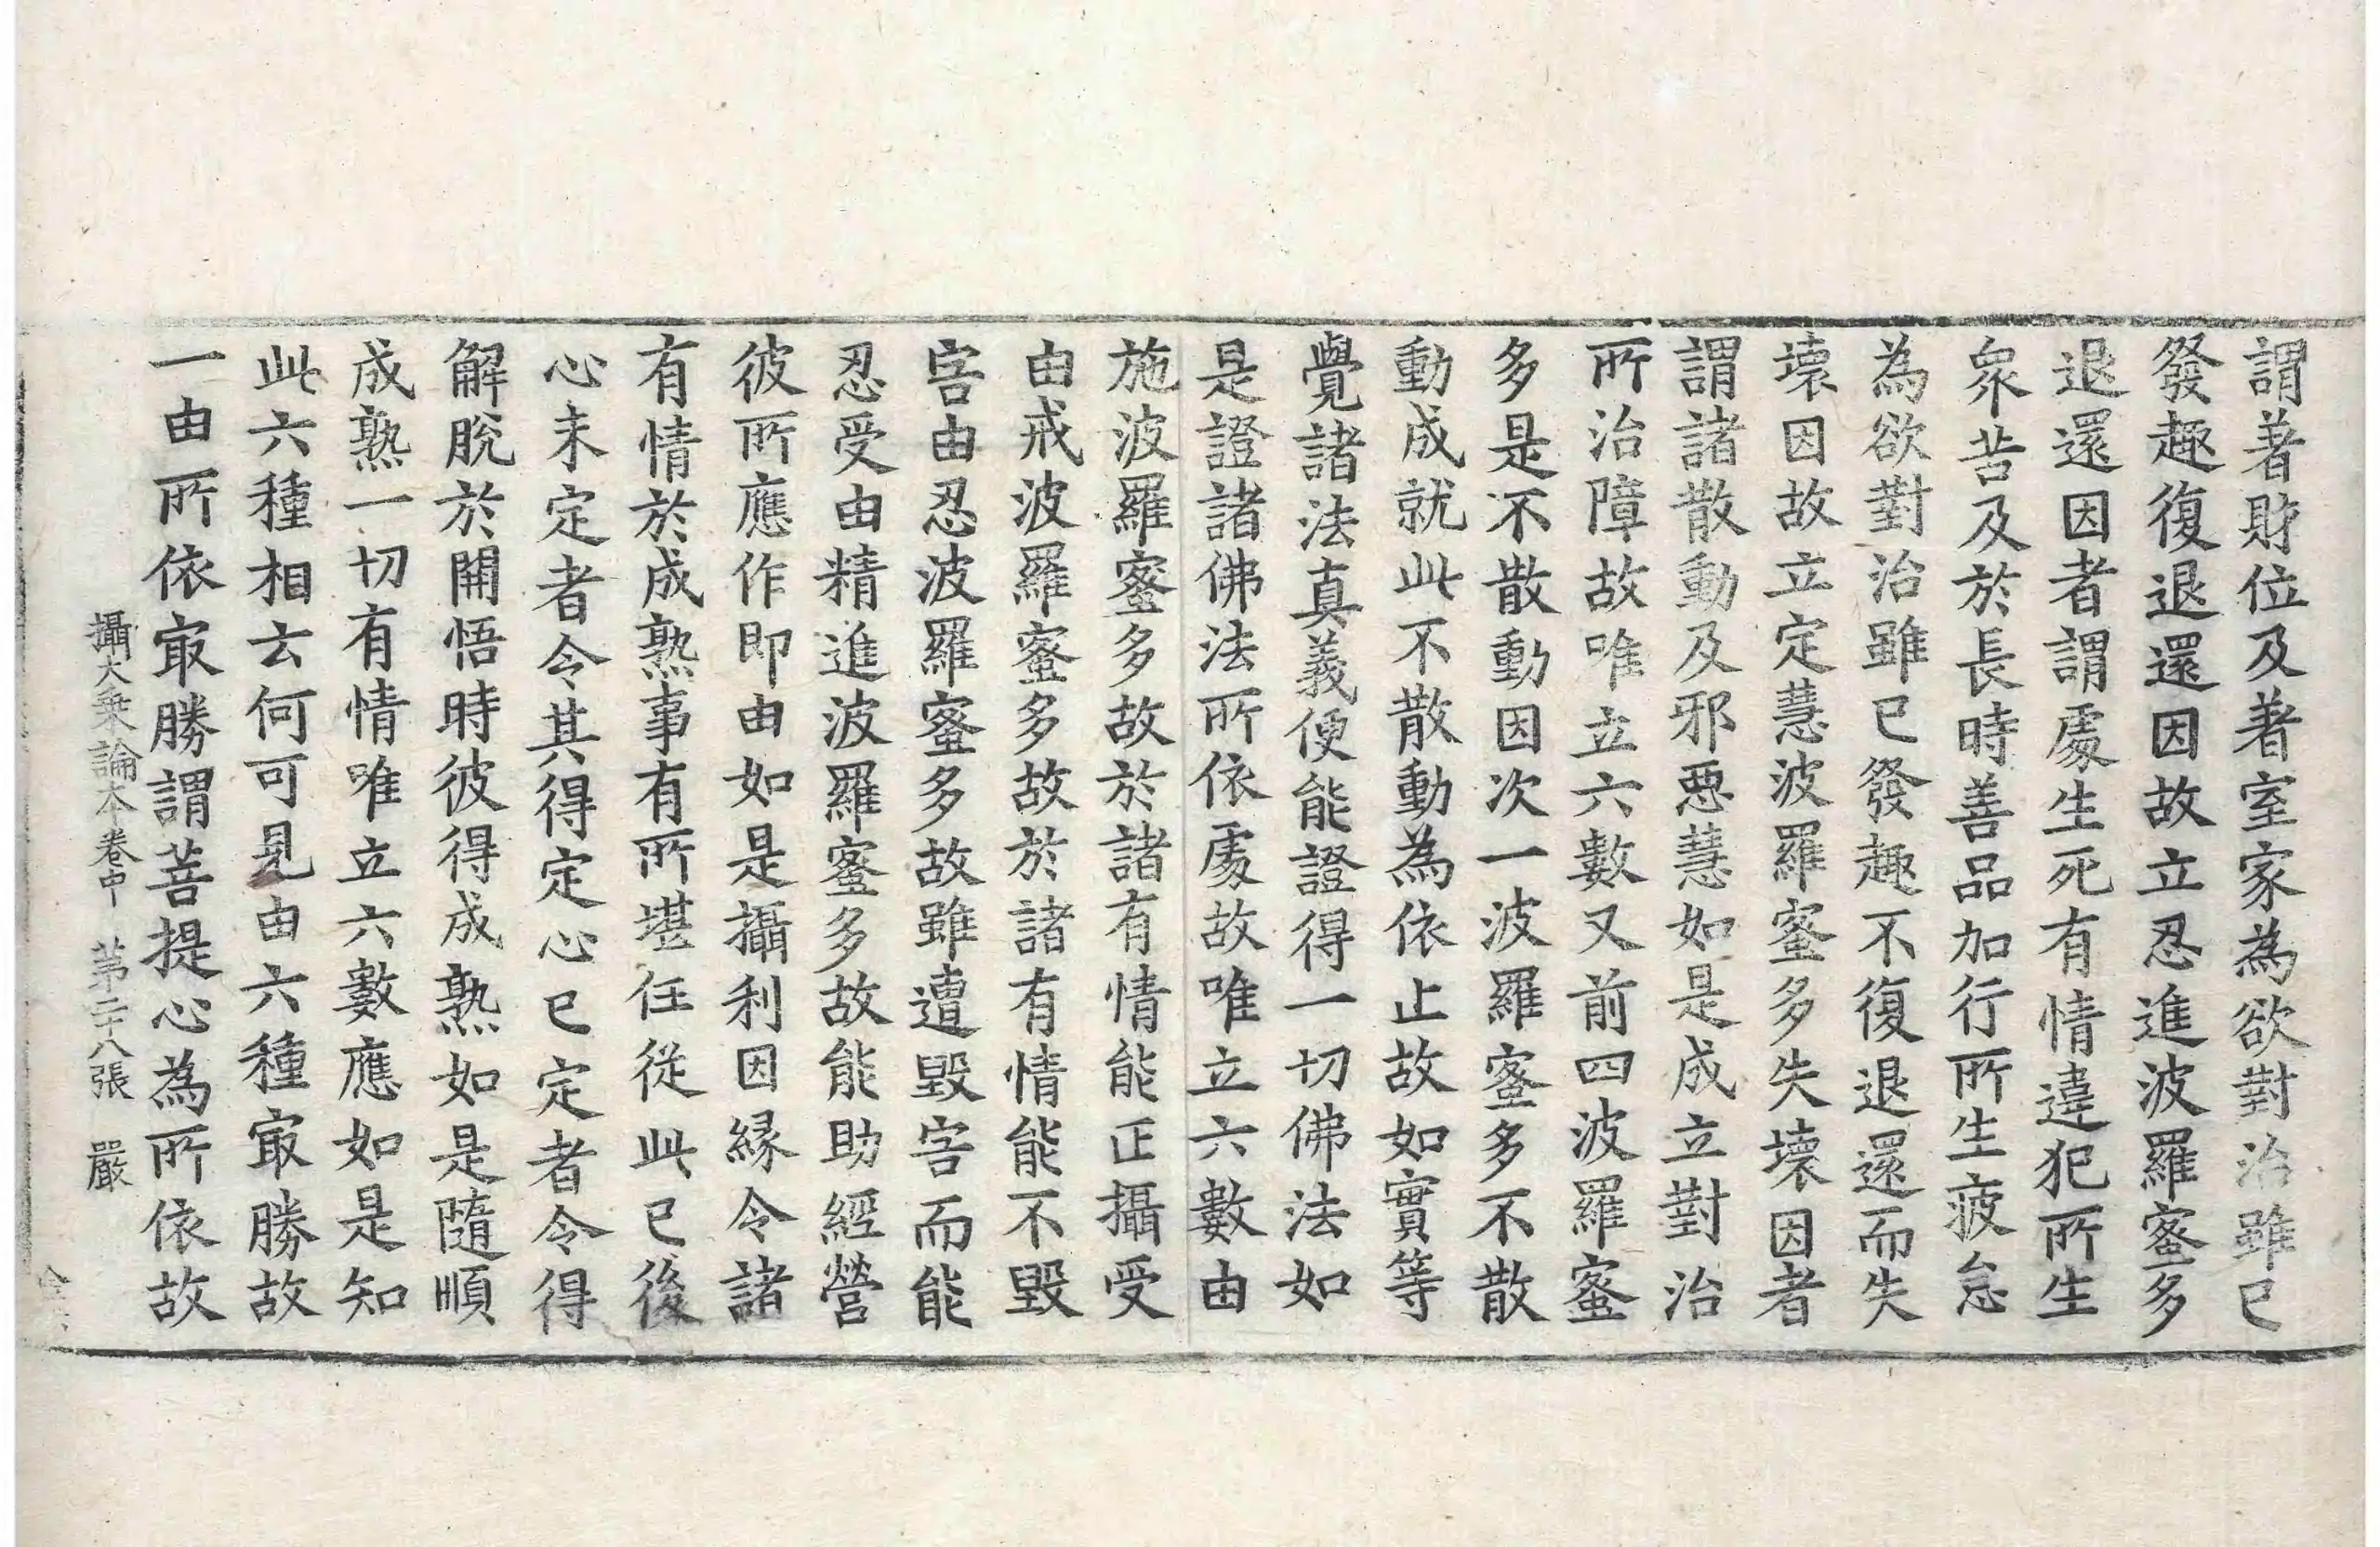 謂著財位及著室家為欲對治雖已
發趣復退還因故立忍進波羅蜜多
退還因者謂處生死有情違犯所生
衆苦及於長時善品加行所生疲怠
為欲對治雖已發趣不復退還而失
壞因故立定慧波羅蜜多失壞因者
謂諸散動及邪惡慧如是成立對治
所治障故唯立六數又前四波羅蜜
多是不散動因次一波羅蜜多不散
動成就此不散動為依止故如實等
覺諸法真義便能證得一切佛法如
是證諸佛法所依處故唯立六數由
施波羅蜜多故於諸有情能正攝受
由戒波羅蜜多故於諸有情能不毀
害由忍波羅蜜多故雖遭毀害而能
忍受由精進波羅蜜多故能助經營
彼所應作即由如是攝利因緣令諸
有情於成熟事有所堪任從此已後
心未定者令其得定心已定者令得
解脫於開悟時彼得成熟如是隨順
成熟一切有情唯立六數應如是知
此六種相云何可見由六種㝡勝故
一由所依㝡勝謂菩提心為所依故
攝大乗論本卷中 苐二十八張 嚴